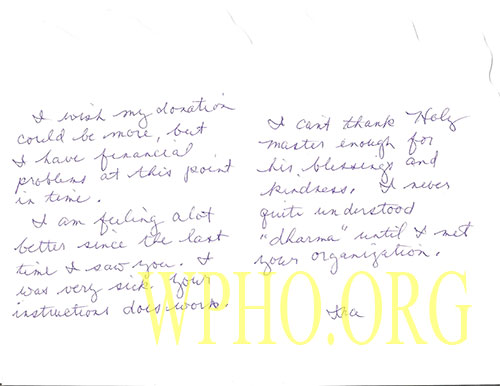 I wish my donation
could be more, but
I have financial
problems at this point
in time.
I am feeling alot
better since the last
time I saw you. I
was very sick. Your
instructions does work.
I can't thank Holy
master enough for
his blessings and
kindness. I never
quite understood
"dharma" until I met
your organization.
WPHO.ORG